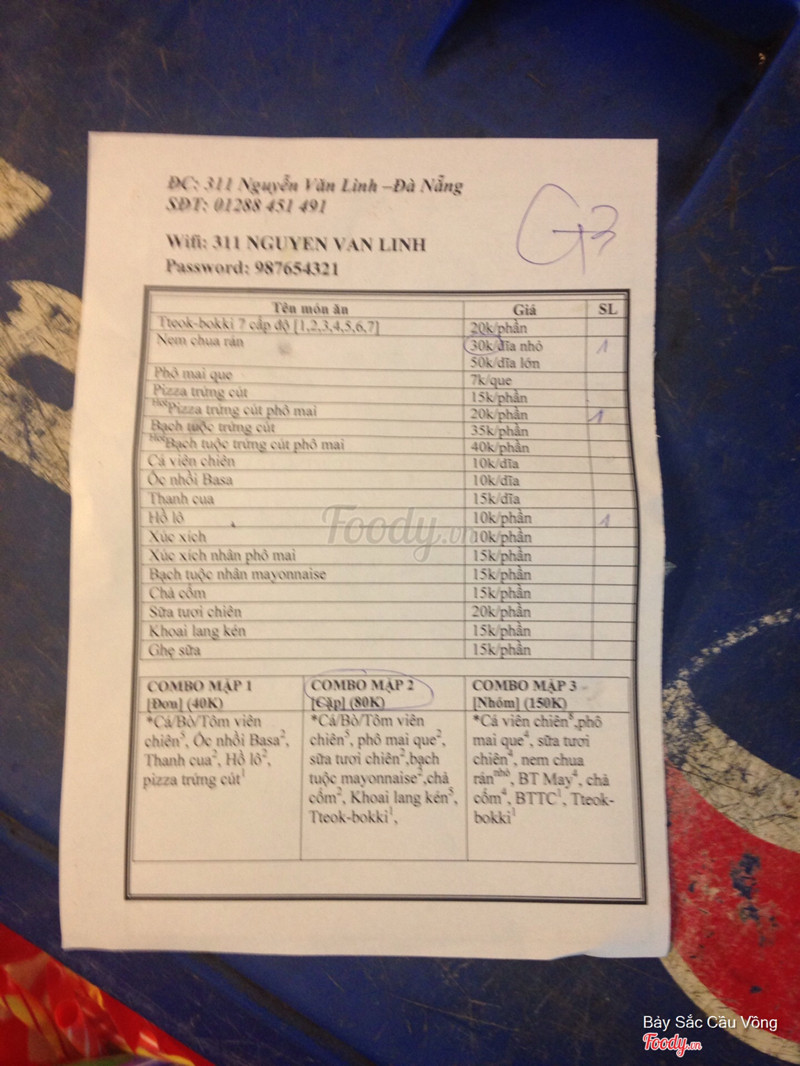 ĐC: 311 Nguyễn Văn Linh –Đà Nẵng
SĐT: 01288 451 491
G3
Wifi: 311 NGUYEN VAN LINH
Password: 987654321
Tên món ăn Giá SL
Tteok-bokki 7 cấp độ [1,2,3,4,5,6,7] 20k/phần
Nem chua rán 30k/đĩa nhỏ 1
50k/đĩa lớn
Phô mai que 7k/que
Pizza trứng cút 15k/phần
Hot Pizza trứng cút phô mai 20k/phần 1
Bạch tuộc trứng cút 35k/phần
Hot Bạch tuộc trứng cút phô mai 40k/phần
Cá viên chiên 10k/đĩa
Ốc nhồi Basa 10k/đĩa
Thanh cua 15k/đĩa
Hồ lô 10k/phần 1
Xúc xích 10k/phần
Xúc xích nhân phô mai 15k/phần
Bạch tuộc nhân mayonnaise 15k/phần
Chả cốm 15k/phần
Sữa tươi chiên 20k/phần
Khoai lang kén 15k/phần
Ghẹ sữa 15k/phần
COMBO MẬP 1
[Đơn] (40K)
*Cá/Bò/Tôm viên
chiên5, Ốc nhồi Basa2,
Thanh cua2, Hồ lô2,
pizza trứng cút1
COMBO MẬP 2
[Cặp] (80K)
*Cá/Bò/Tôm viên
chiên5, phô mai que2,
sữa tươi chiên2,bạch
tuộc mayonnaise2,chả
cốm2, Khoai lang kén5,
Tteok-bokki1,
COMBO MẬP 3
[Nhóm] (150K)
*Cá viên chiên8,phô
mai que4, sữa tươi
chiên4, nem chua
ránnhỏ, BT May4, chả
cốm4, BTTC1, Tteok-
bokki1
Foody.vn
Bảy Sắc Cầu Vồng
Foody.vn